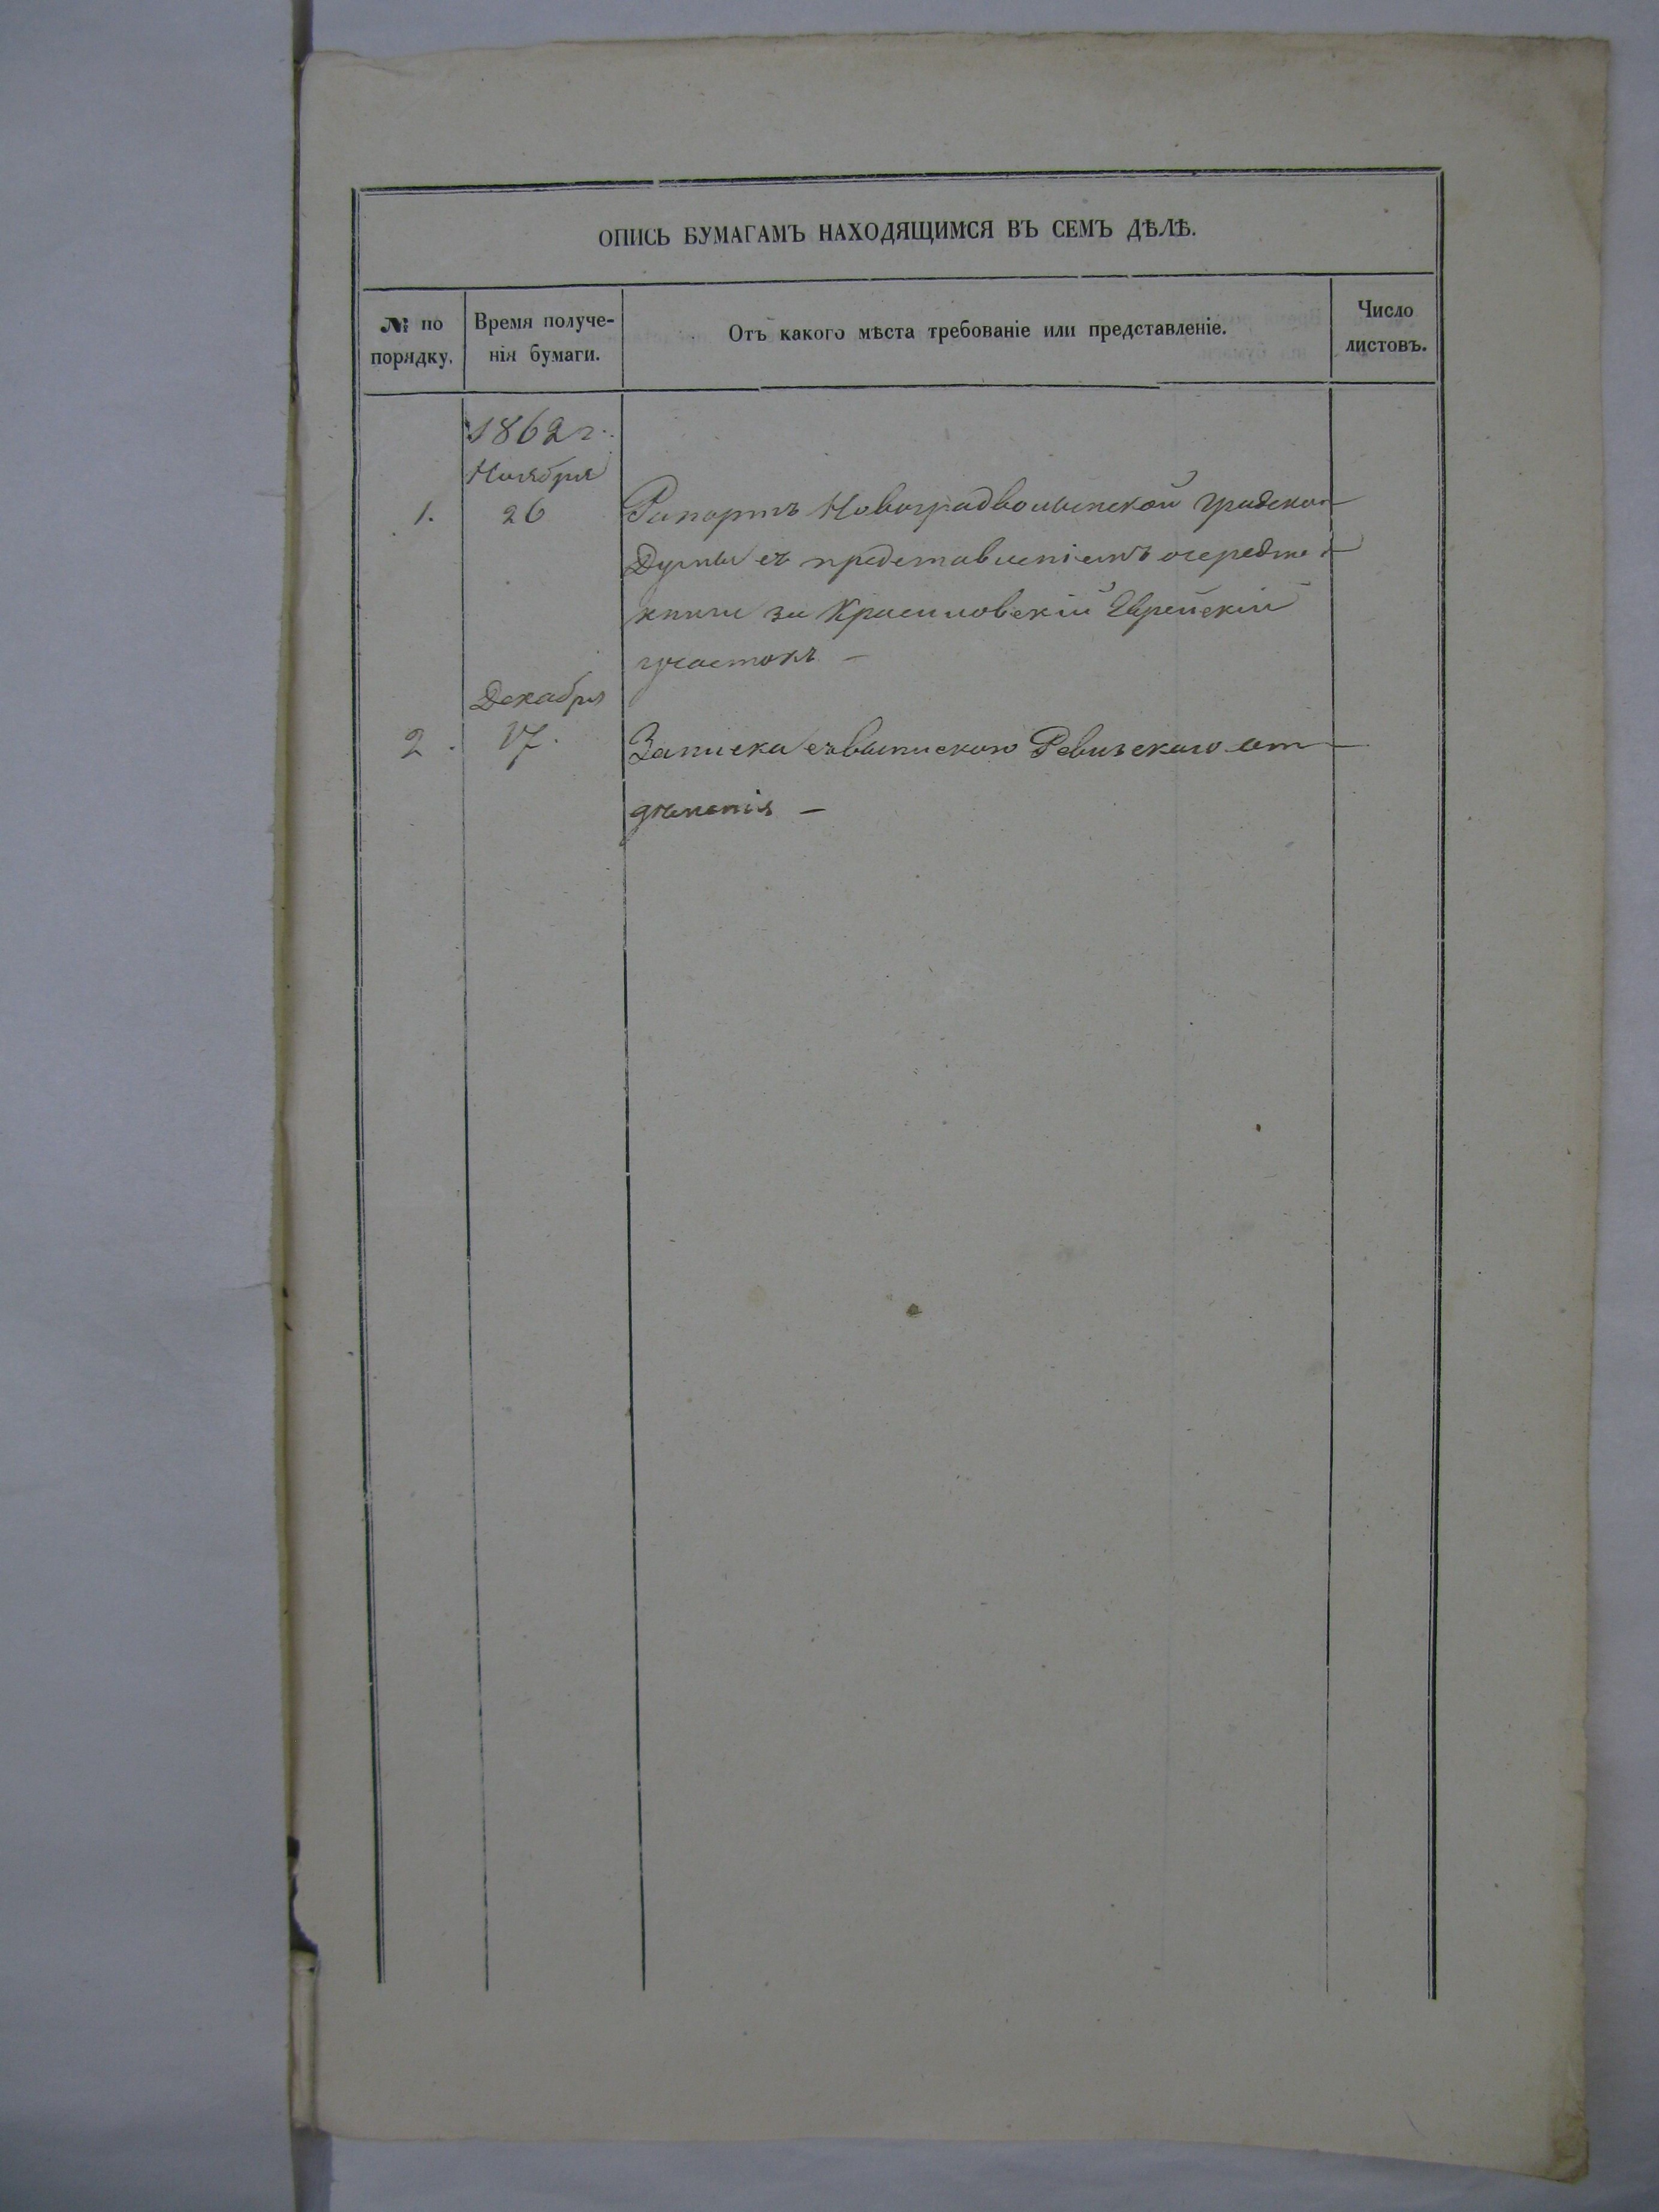 ОПИСЬ БУМАГАМЪ НАХОДЯЩИМСЯ ВЪ СЕМЪ ДѢЛѢ.
№ по порядку.
Время получе-
нія бумаги.
Отъ какого мѣста требованіе или представленіе.
Число
листовъ.
1862 г.
Ноября
1. 26 Рапортъ Новоградволынской Градской
Думы съ представленіемъ очередной
книги за Красиловскій Еврейскій
участокъ —
Декабря
2. 17. Записка съ выпискою Ревизскаго от
дѣленія —